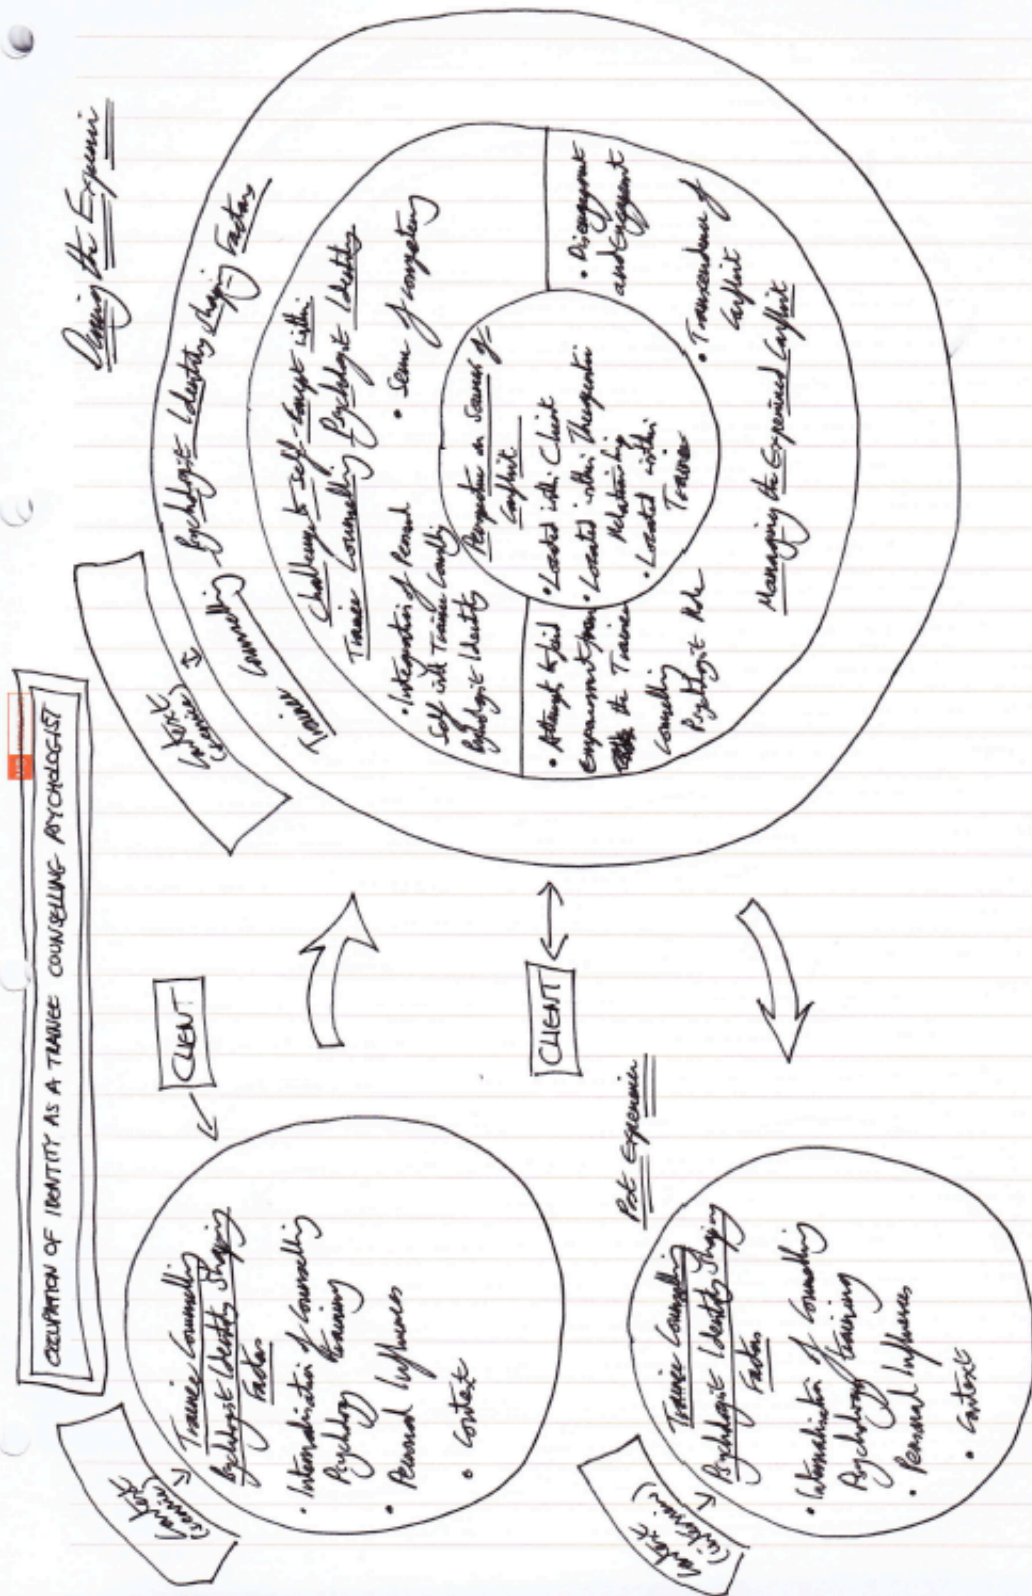 OCCUPATION OF IDENTITY AS A TRAINEE COUNSELLING PSYCHOLOGIST
Context
(service)
Trainee Counselling
Psychologist Identity Shaping
Factors
• Internalisation of Counselling
Psychology training
• Personal Influences
• Context
CLIENT
Context
(service)
During the Experience
Trainee Counselling Psychologist Identity Shaping Factors
Challenge to Self-Concept within
Trainee Counselling Psychologist Identity
• Integration of Personal
Self with Trainee Counselling
Psychologist Identity
• Sense of competency
Perspective on Sources of
Conflict
• Located within Client
• Located within Therapeutic
Relationship
• Located within
Trainee
• Attempt to find
empowerment from
the Trainee
Counselling
Psychologist Role
• Disengagement
and Engagement
• Transcendence of
Conflict
Managing the Experienced Conflict
CLIENT
Post Experience
Context
Trainee Counselling
Psychologist Identity Shaping
Factors
• Internalisation of Counselling
Psychology training
• Personal Influences
• Context